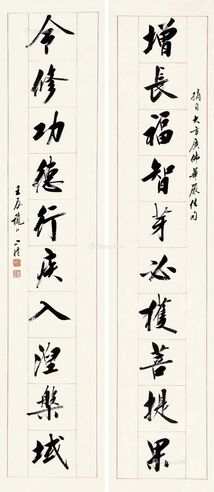 增長福智芽必獲菩提果
摘自大方廣佛華嚴經句
令修功德行疾入涅槃域
壬辰